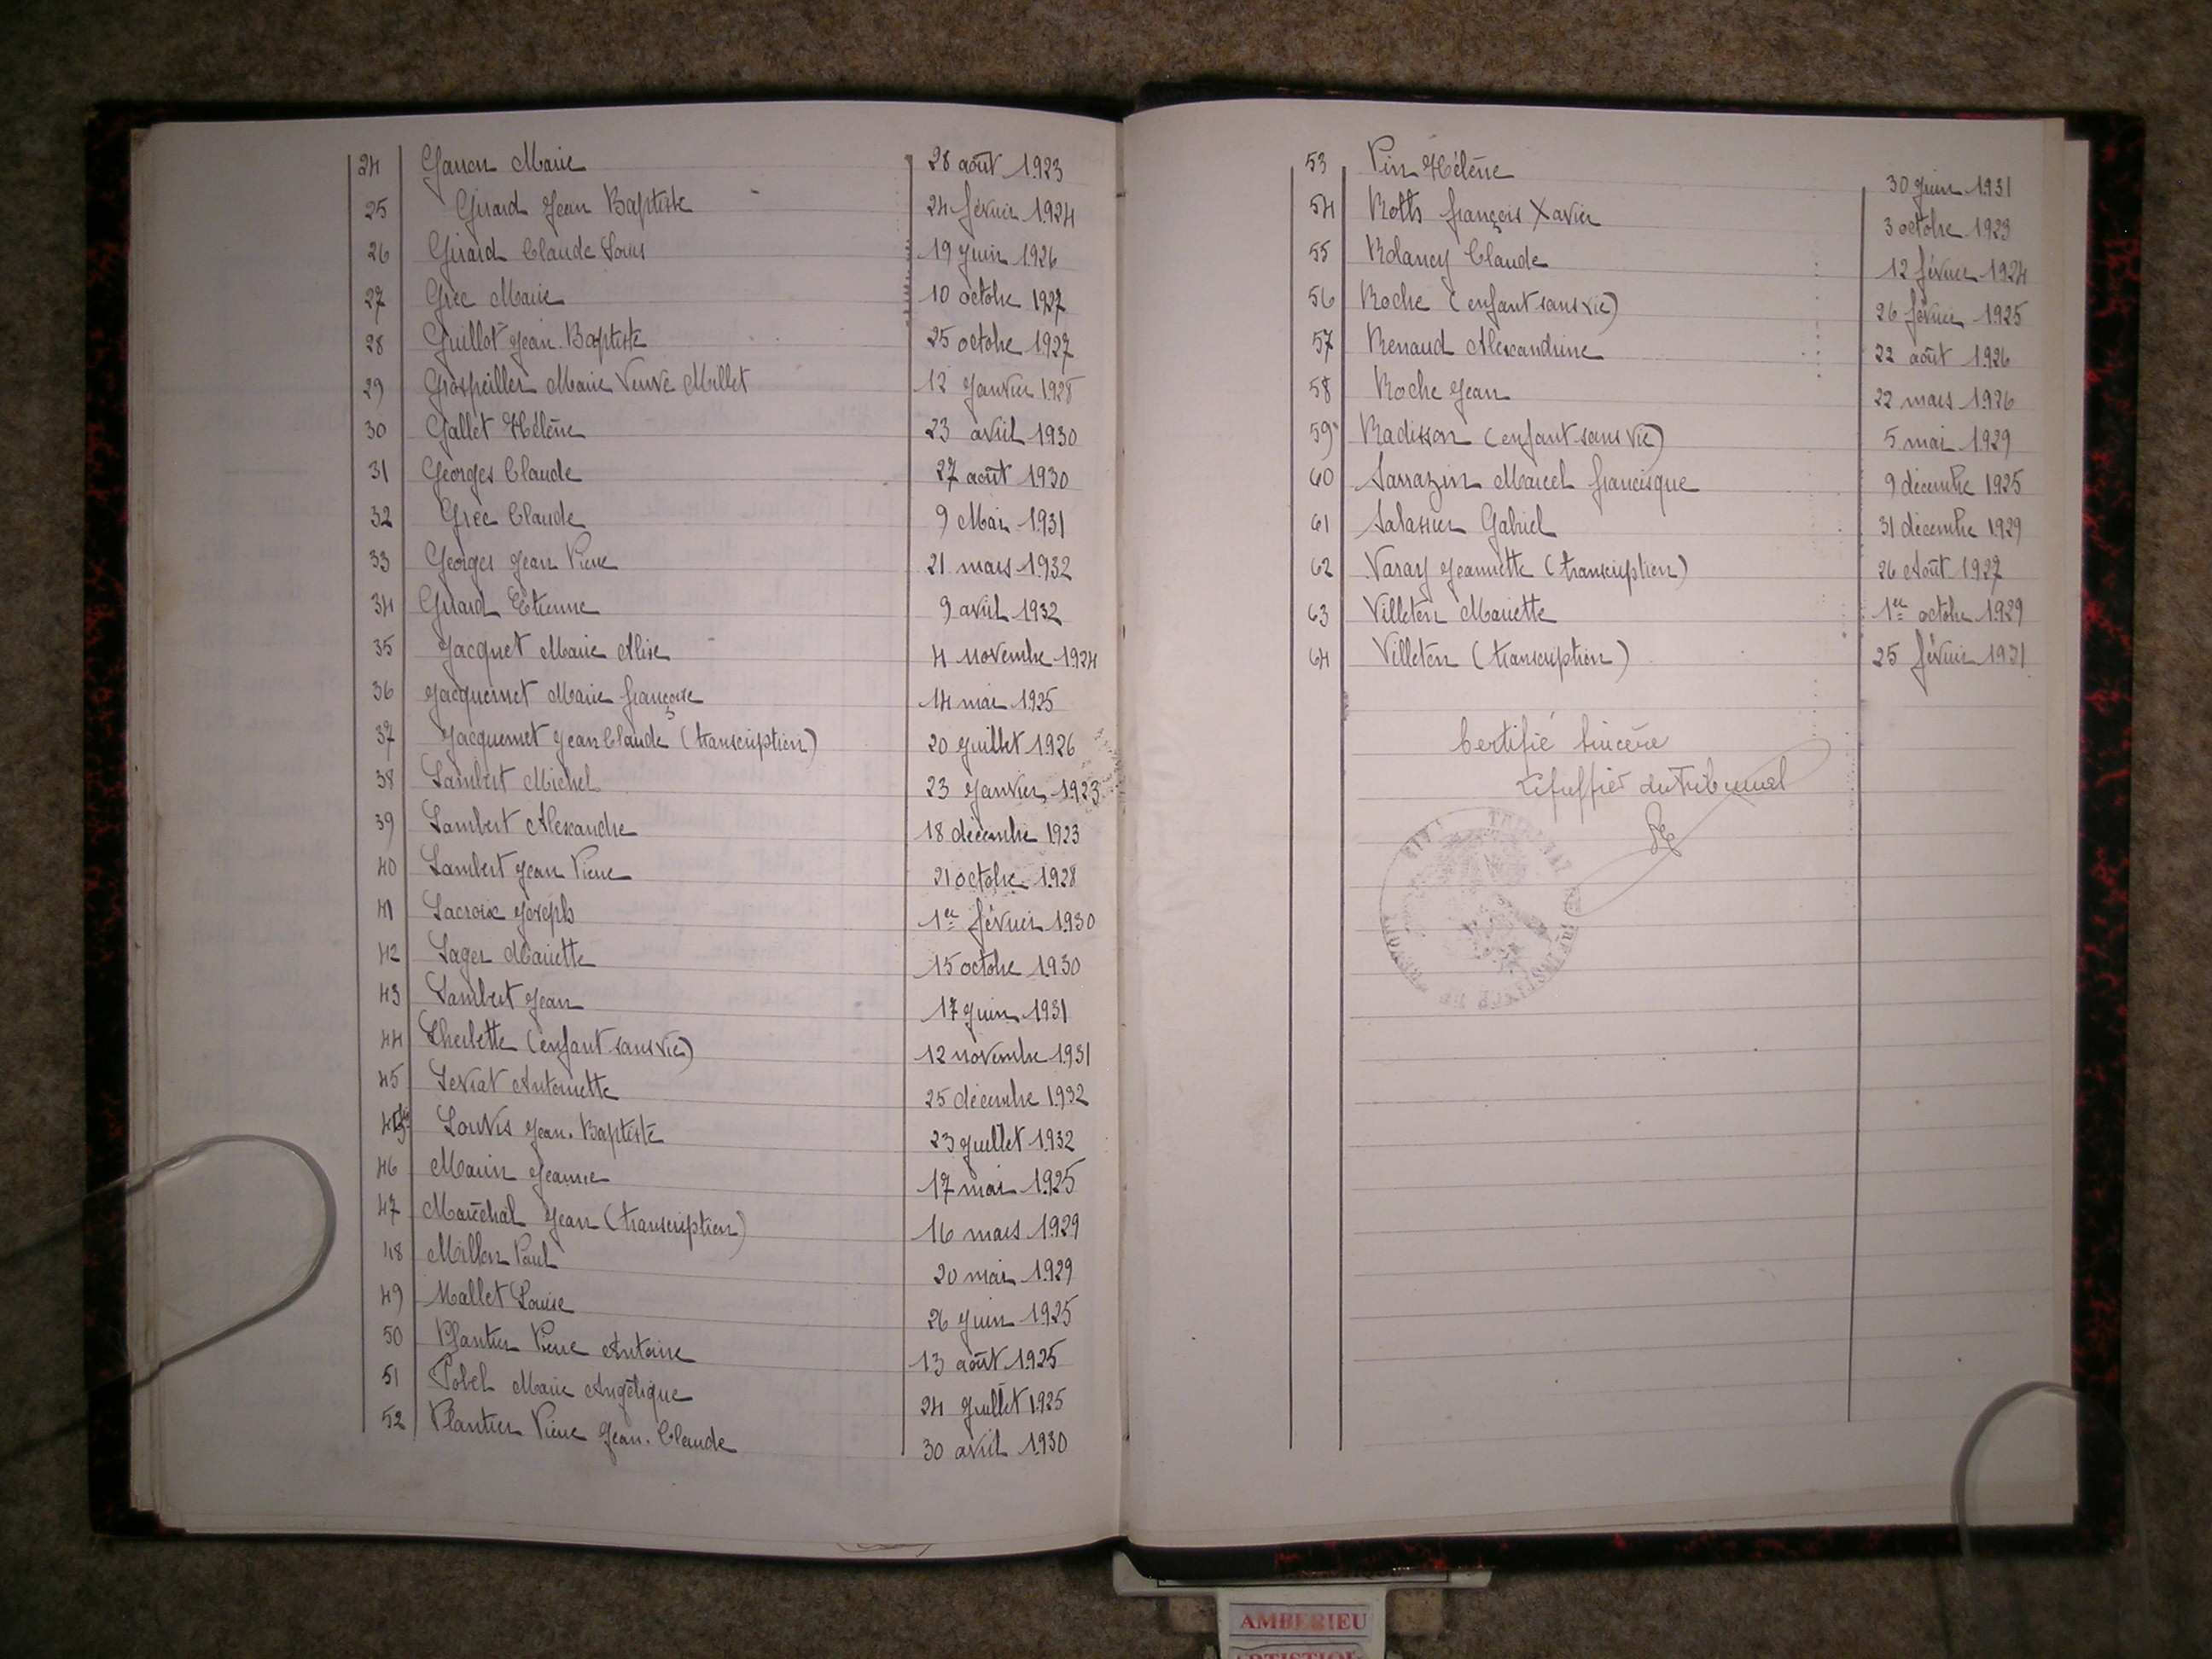 24 Ganon Marie 28 août 1923
25 Girard Jean Baptiste 24 février 1924
26 Girard Claude Louis 19 juin 1926
27 Grec Marie 10 octobre 1927
28 Guillot Jean-Baptiste 25 octobre 1927
29 Grospeiller Marie Veuve Millet 12 janvier 1928
30 Gallet Hélène 23 avril 1930
31 Georges Claude 27 août 1930
32 Grec Claude 9 Mai 1931
33 Georges Jean Pierre 21 mars 1932
34 Girard Etienne 9 avril 1932
35 Jacquet Marie Alise 4 novembre 1924
36 Jacquemet Marie françoise 14 mai 1925
37 Jacquemet Jean Claude (transcription) 20 juillet 1926
38 Lambert Michel 23 janvier 1923
39 Lambert Alexandre 18 décembre 1923
40 Lambert Jean Pierre 21 octobre 1928
41 Lacroix Joseph 1er février 1930
42 Lager Mariette 15 octobre 1930
43 Lambert Jean 17 juin 1931
44 Lherbette (enfant sans vie) 12 novembre 1931
45 Leviat Antoinette 25 décembre 1932
45bis Louvis Jean-Baptiste 23 juillet 1932
46 Marin Jeanne 17 mai 1925
47 Maréchal Jean (transcription) 16 mars 1929
48 Millon Paul 20 mai 1929
49 Mallet Louise 26 juin 1925
50 Plantier Pierre Antoine 13 août 1925
51 Pobel Marie Angélique 24 juillet 1925
52 Plantier Pierre Jean-Claude 30 avril 1930
53 Pin Hélène 30 juin 1931
54 Rotts françois Xavier 3 octobre 1923
55 Rolancy Claude 12 février 1924
56 Roche (enfant sans vie) 26 février 1925
57 Renaud Alexandrine 22 août 1926
58 Roche Jean 22 mars 1926
59 Radisson (enfant sans vie) 5 mai 1929
60 Sarrazin Marcel francisque 9 décembre 1925
61 Salassier Gabriel 31 décembre 1929
62 Varay Jeannette (transcription) 26 Août 1927
63 Villeton Mariette 1er octobre 1929
64 Villeton (transcription) 25 février 1931
Certifié sincère
Le greffier du Tribunal
AMBERIEU